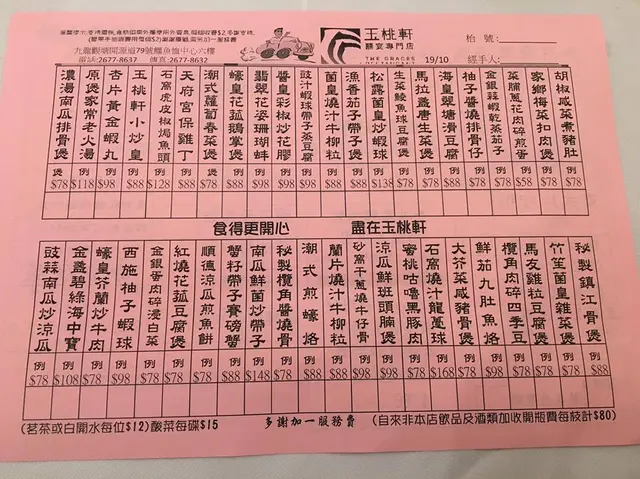 九龍觀塘開源道79號鱷魚恤中心六樓
電話:2677-8637 傳真:2677-8632
玉桃軒
囍宴專門店
THE GRACES
19/10
枱號:
經手人:
胡椒咸菜煮豬肚 例 $78
家鄉梅菜扣肉煲 例 $78
菜脯蔥花肉碎煎蛋 例 $58
金銀蒜蝦乾蒸茄子 例 $78
柚子醬燒排骨仔 例 $78
海皇翠塘滑豆腐 例 $88
馬拉盞唐生菜煲 例 $78
生菜鯪魚球豆腐煲 例 $78
松露菌皇炒蝦球 例 $138
菌皇燒汁牛柳粒 例 $88
魚香茄子帶子煲 例 $88
豉汁蝦球帶子蒸豆腐 例 $98
醬皇彩椒炒花膠 例 $98
翡翠花姿珊瑚蚌 例 $98
蠔皇花菰鵝掌煲 例 $88
潮式蘿蔔春菜煲 例 $78
天府宮保雞丁 例 $88
石窩虎皮椒焗魚頭 例 $128
玉桃軒小炒皇 例 $88
杏片黃金蝦丸 例 $98
原煲家常老火湯 煲 $118
濃湯南瓜排骨煲 煲 $78
食得更開心 盡在玉桃軒
秘製鎮江骨煲 例 $88
竹笙菌皇雜菜煲 例 $78
馬友雞粒豆腐煲 例 $78
欖角肉碎四季豆 例 $78
鮮茄九肚魚烙 例 $98
大芥菜咸豬骨煲 例 $78
石窩燒汁龍躉球 例 $168
蜜桃咕嚕黑豚肉 例 $78
涼瓜鮮班頭腩煲 例 $98
砂窩干蔥燒牛仔骨 例 $98
蘭片燒汁牛柳粒 例 $88
潮式煎蠔烙 例 $88
秘製欖角醬燒骨 例 $78
南瓜鮮菌炒帶子 例 $148
蟹籽帶子賽螃蟹 例 $88
順德涼瓜煎魚餅 例 $78
紅燒花菰豆腐煲 例 $78
金銀蛋肉碎浸白菜 例 $78
西施柚子蝦球 例 $98
蠔皇芥蘭炒牛肉 例 $78
金盞碧綠海中寶 例 $108
豉蒜南瓜炒涼瓜 例 $78
(茗茶或白開水每位$12)酸菜每碟$15
多謝加一服務費
(自來非本店飲品及酒類加收開瓶費每枝計$80)